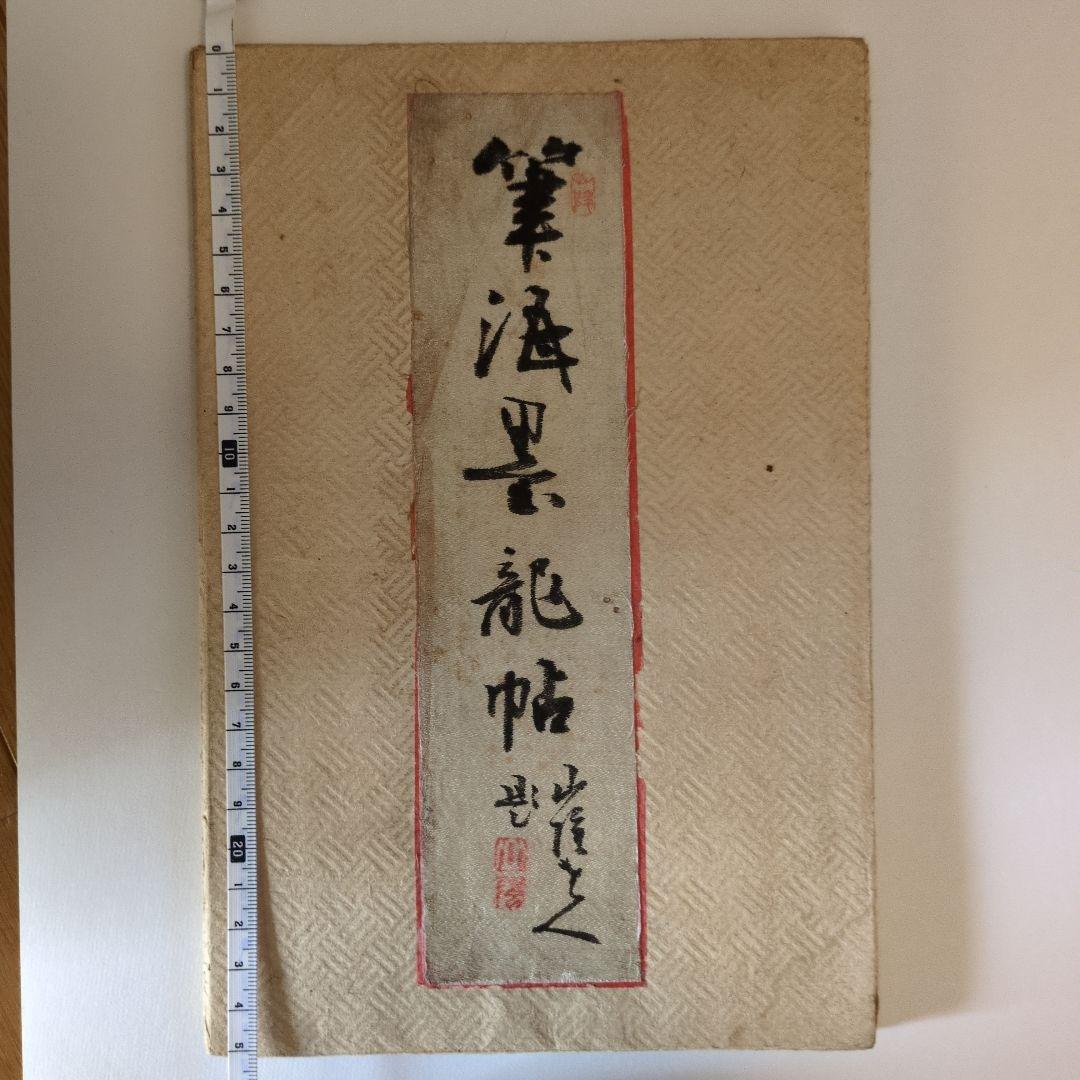 筆海墨龍帖
老人
題
0
1
2
3
4
5
6
7
8
9
10
1
2
3
4
5
6
7
8
9
20
1
2
3
4
5